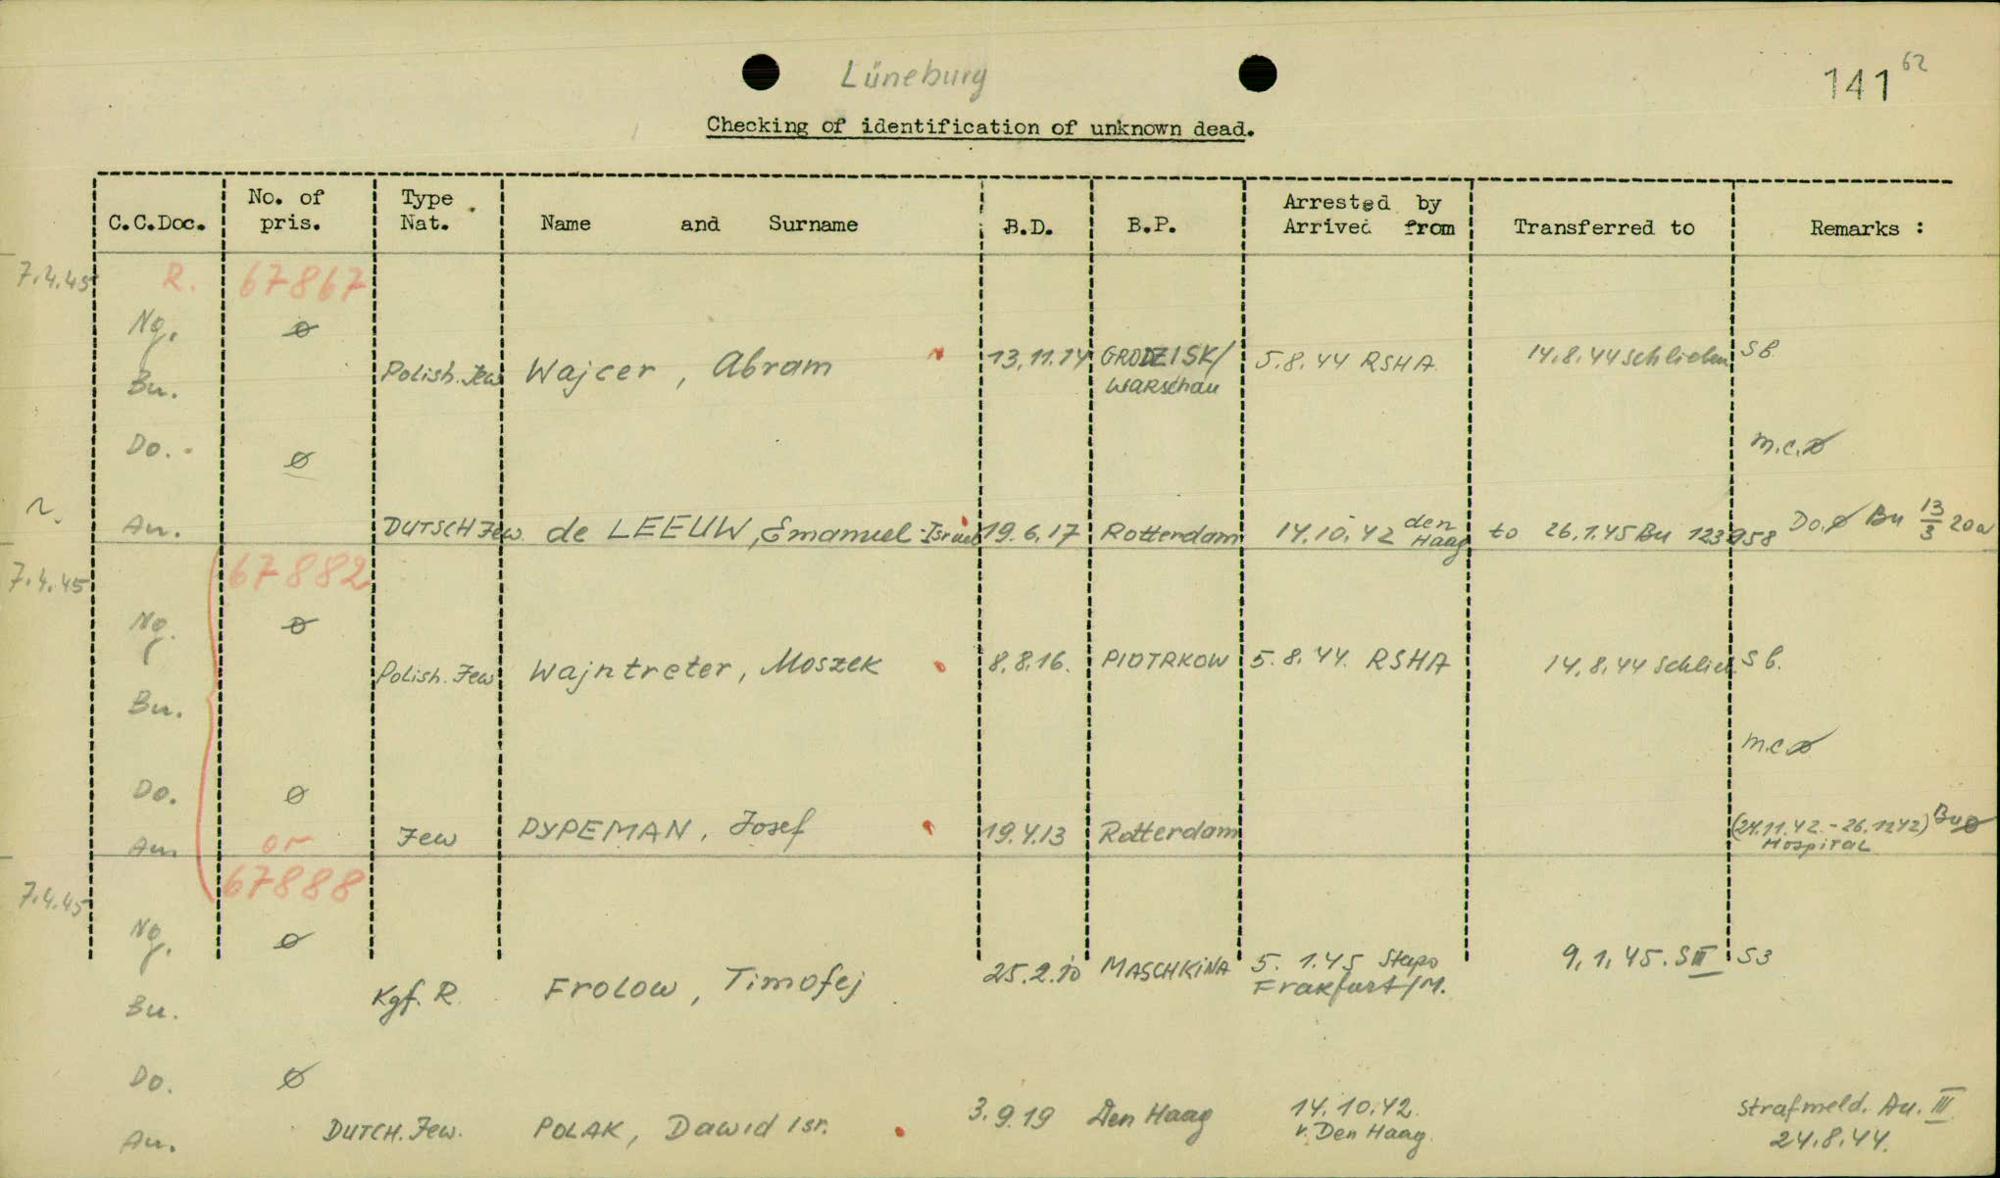 Lüneburg
141 62
Checking of identification of unknown dead.
C.C.Doc. No. of pris. Type Nat. Name and Surname B.D. B.P. Arrested by Arrived from Transferred to Remarks :
7.4.45 R. 67867
Ng. ø
Bu. Polish. Jew Wajcer, Abram 13.11.14 GRODZISK/ Warschau 5.8.44 RSHA 14.8.44 Schlieben SB.
Do. ø m.c. ø
Au. DUTSCH Jew. de LEEUW, Emanuel-Israel 19.6.17 Rotterdam 14.10.42 den Haag to 26.1.45 Bu 123958 Do. ø Bu 13/3 20a
7.4.45 67882
Ng. ø
Polish. Jew Wajntreter, Moszek 8.8.16. PIOTRKOW 5.8.44. RSHA 14.8.44 Schlieb SB.
Bu.
m.c ø
Do. ø
Au. or Jew DYPEMAN, Josef 19.4.13 Rotterdam (24.11.42 - 26.1242) Bu ø
Hospital
7.4.45 67888
Ng. ø
Bu. Kgf. R. Frolow, Timofej 25.2.10 MASCHKINA 5. 1.45 Stapo Frakfurt/M. 9.1.45. S III S3
Do. ø
Au. DUTCH. Jew. POLAK, Dawid Isr. 3.9.19 Den Haag 14.10.42. v. Den Haag. Strafmeld. Au. III
24.8.44.